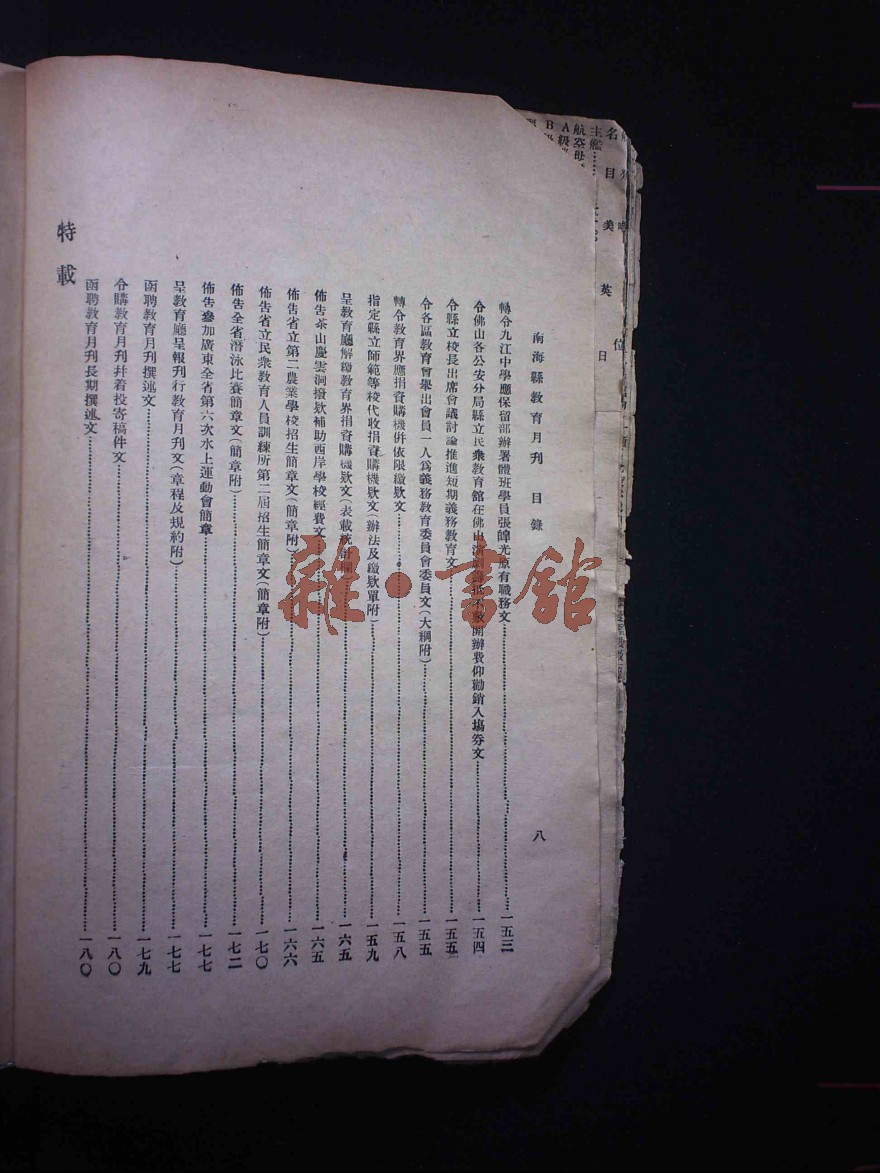 南海縣教育月刊 目錄 八
轉令九江中學應保留部辦署體班學員張皞光原有職務文 一五三
令佛山各公安分局縣立民衆教育館在佛山演劇籌抵不敷開辦費仰勸銷入塲劵文 一五四
令縣立校長出席會議討論推進短期義務教育文 一五五
令各區教育會舉出會員一人爲義務教育委員會委員文(大綱附) 一五五
轉令教育界應捐資購機併依限繳欵文 一五八
指定縣立師範等校代收捐資購機欵文(辦法及繳欵單附) 一五九
呈教育廳解繳教育界捐資購機欵文(表載統計欄) 一六五
佈告茶山慶雲洞撥欵補助西岸學校經費文 一六五
佈告省立第二農業學校招生簡章文(簡章附) 一六六
佈告省立民衆教育人員訓練所第二屆招生簡章文(簡章附) 一七〇
佈告全省游泳比賽簡章文(簡章附) 一七二
佈告參加廣東全省第六次水上運動會簡章 一七七
呈教育廳呈報刋行教育月刋文(章程及規約附) 一七七
函聘教育月刋撰述文 一七九
令購教育月刋幷着投寄稿件文 一八〇
函聘教育月刋長期撰述文 一八〇
特載
雜·書館
名 目 美 英 日
主艦
航空母
A級
B
位